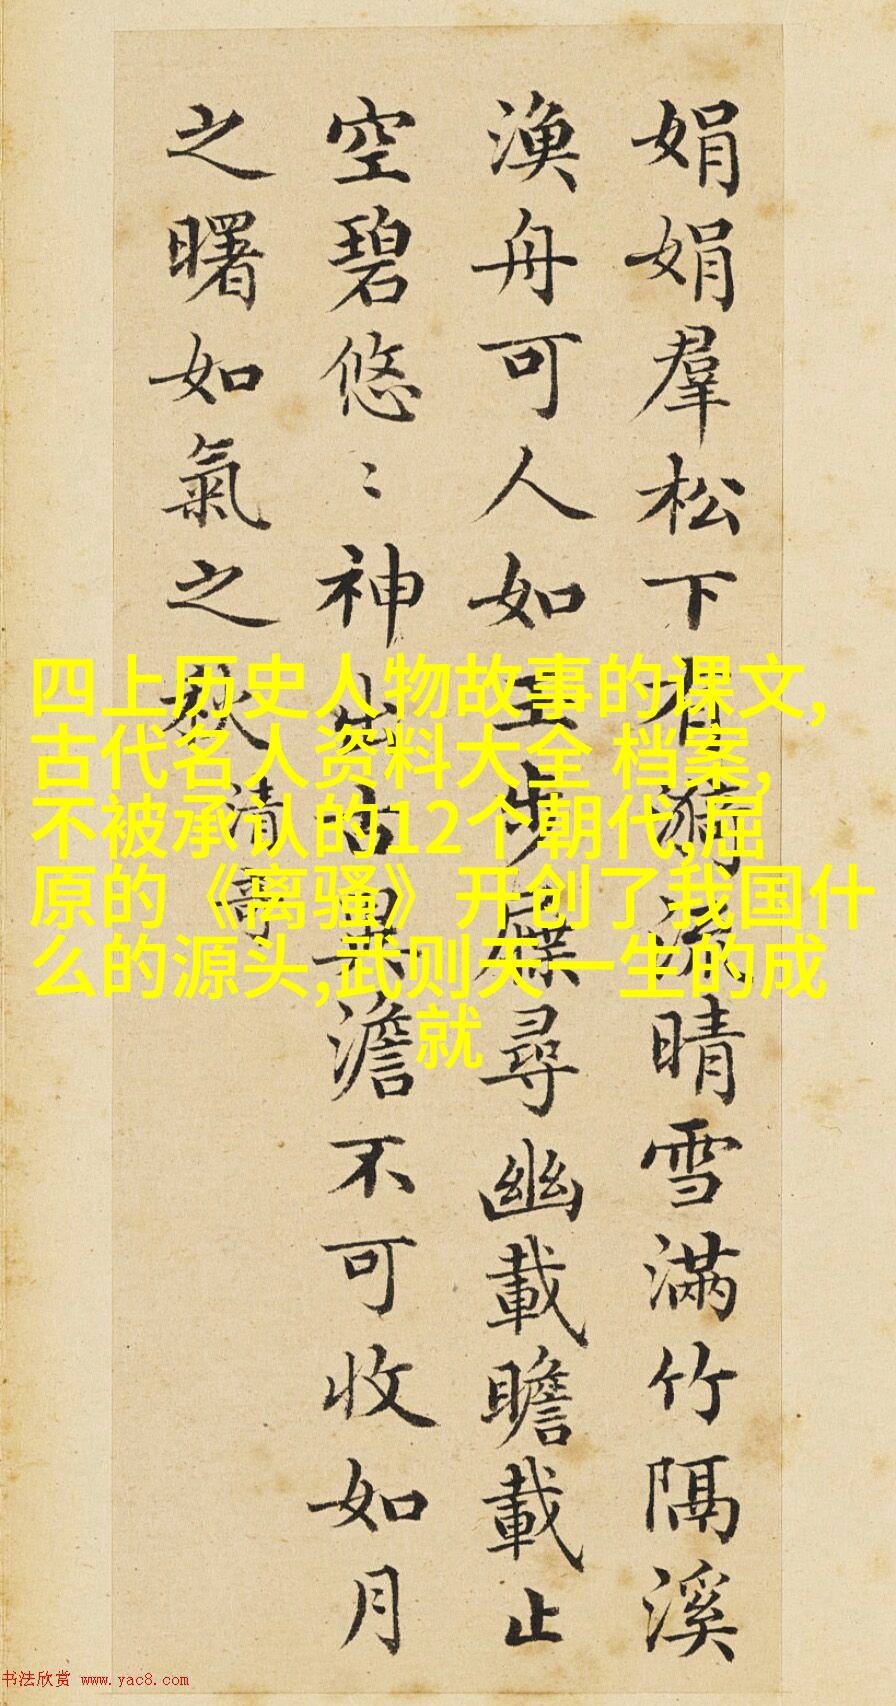 娟娟羣松下有漪流晴雪滿竹隔溪
漁舟可人如玉步屧尋幽載瞻載止
空碧悠〻神出古異澹不可收如月
之曙如氣之秋
四上历史人物故事的课文,
古代名人资料大全 档案,
不被承认的12个朝代,屈
原的《离骚》开创了我国什
么的源头,武则天一生的成
就
书法欣赏 www.yac8.com